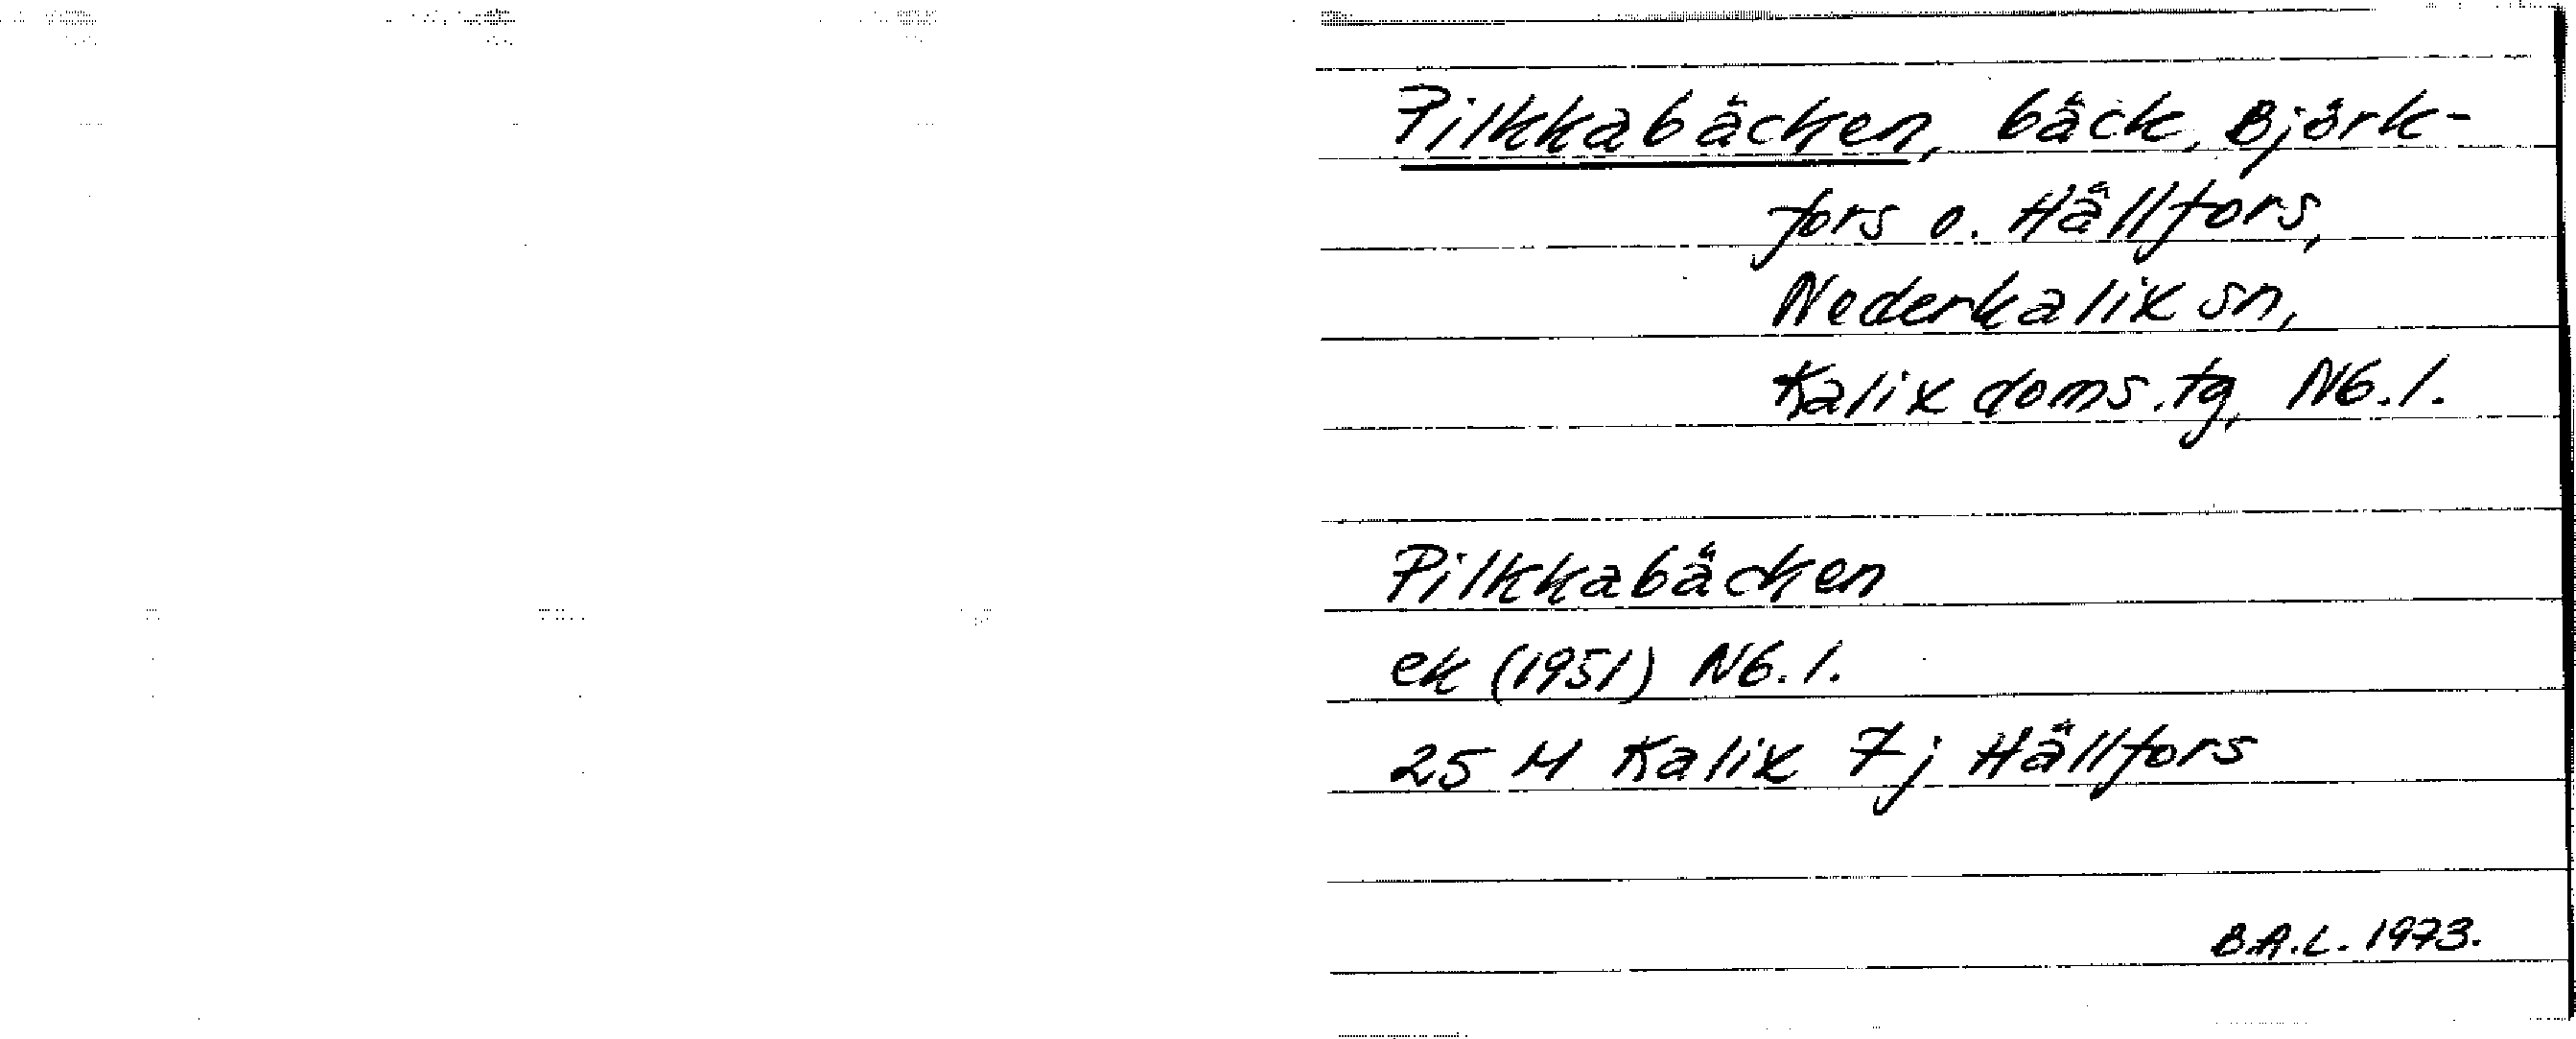 Pilkkabäcken, bäck, Björk-
fors o. Hällfors,
Nederkalix sn,
Kalix doms.tg, Nb.l.
Pilkkabäcken
ek (1951) Nb.l.
25 M Kalix 7j Hällfors
B.A.L. 1973.